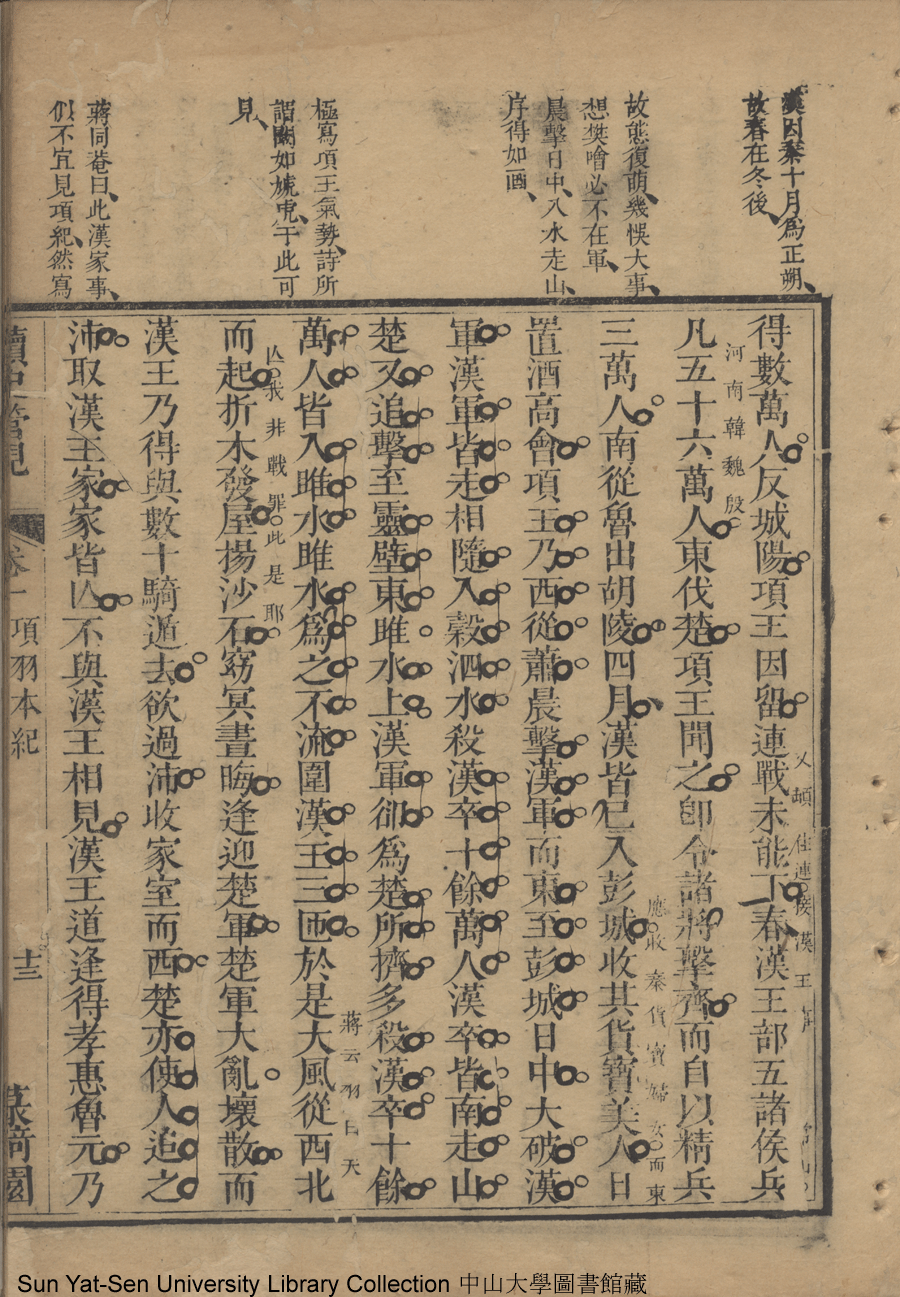 漢因秦十月為正朔、
故春在冬後、
故態復萌、幾悞大事、
想樊噲必不在軍、
晨擊日中、入水走山、
序得如畫、
極寫項王氣勢、詩所
謂闞如虓虎、于此可
見、
蔣同菴曰、此漢家事、
似不宜見項紀、然寫
得數萬人反城陽項王因留連戰未能下春漢王部五諸侯兵
又頓住連接漢王
河南韓魏殷
凡五十六萬人東伐楚項王聞之卽令諸將擊齊而自以精兵
三萬人南從魯出胡陵四月漢皆已入彭城收其貨寶美人日
應收秦貨寶婦女而東
置酒高會項王乃西從蕭晨擊漢軍而東至彭城日中大破漢
軍漢軍皆走相隨入穀泗水殺漢卒十餘萬人漢卒皆南走山
楚又追擊至靈壁東睢水上漢軍卻為楚所擠多殺漢卒十餘
萬人皆入睢水睢水爲之不流圍漢王三匝於是大風從西北
蔣云羽曰天
亾我非戰罪此是耶
而起折木發屋揚沙石窈冥晝晦逢迎楚軍楚軍大亂壞散而
漢王乃得與數十騎遁去欲過沛收家室而西楚亦使人追之
沛取漢王家家皆亾不與漢王相見漢王道逢得孝惠魯元乃
讀史管見
卷一
項羽本紀
十三
Sun Yat-Sen University Library Collection 中山大學圖書館藏